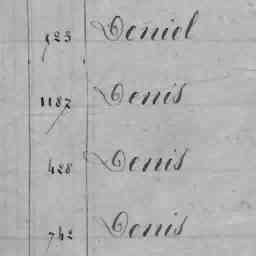 523 Deniel
1187 Denis
428 Denis
742 Denis